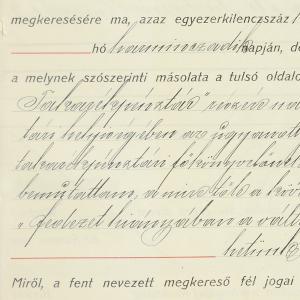 megkeresésére ma, azaz egyezerkilencszáz
hó harminczadik napján, de
a melynek szószerinti másolata a tulsó oldalo
Takarékpénztár" részv
tári helyiségében az ugyanott
takarékpénztári főkönyvelőnek
bemutattam, a mire tőle a köv
"fedezet hiányzában a vált
Miről, a fent nevezett megkereső fél jogai